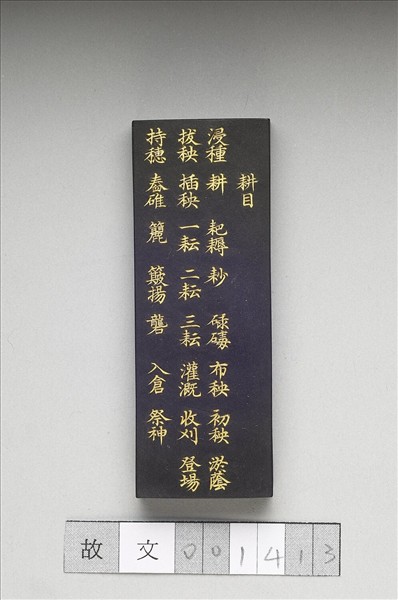 耕目
浸種 耕 耙耨 耖 碌碡 布秧 初秧 淤蔭
拔秧 插秧 一耘 二耘 三耘 灌溉 收刈 登場
持穗 舂碓 簏 簸揚 礱 入倉 祭神
故 文 001413